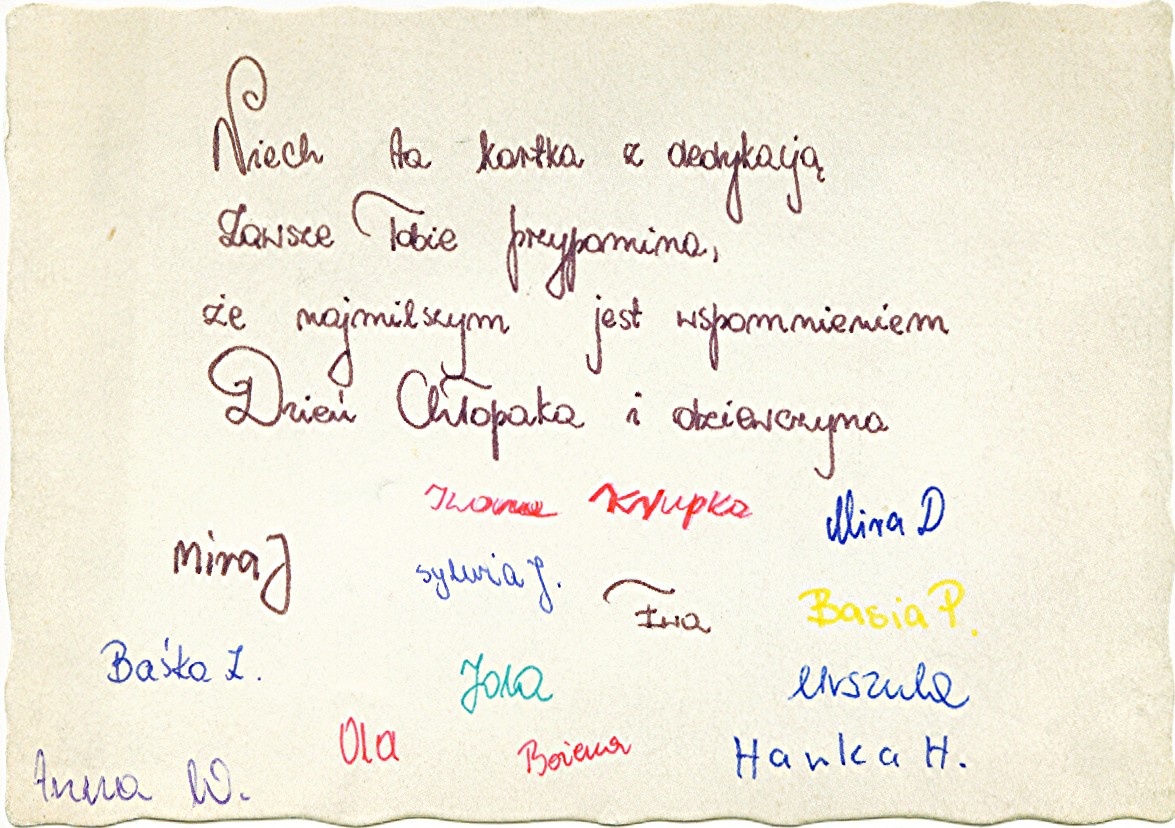 Niech ta kartka z dedykacją
Zawsze Tobie przypomina,
że najmilszym jest wspomnieniem
Dzień Chłopaka i dziewczyna
Iwona Krupka
Mira D
Mira J
Sylwia J.
Ewa
Basia P.
Baśka Z.
Jola
Urszula
Ola
Bożena
Hanka H.
Anna W.